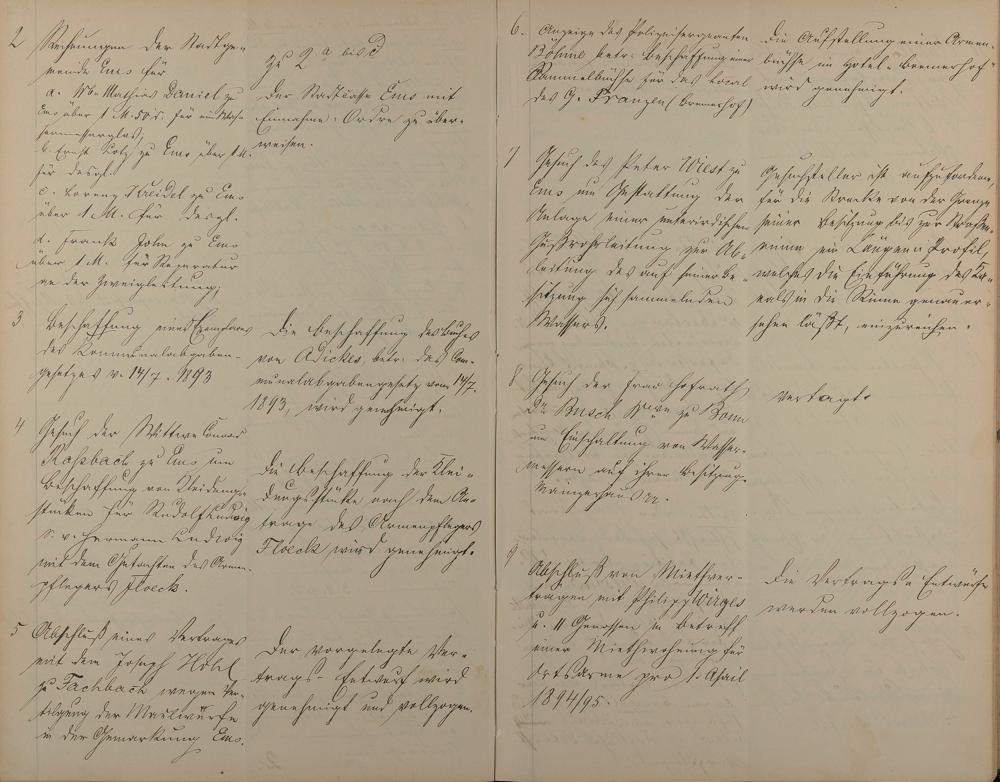 2 Rechnungen der Stadtge-
meinde Ems für
a. Wb. Mathias Daniel zu
Ems über 1 M. 50 d. für ein Was-
sermesserglas,
b. Ernst Lotz zu Ems über 1 M.
für desgl.
c. Lorenz Kreidel zu Ems
über 1 M. für desgl.
d. Frank John zu Ems
über 1 M. für Reparatur
an der Zweigleitung,
zu 2 a bis d
Der Stadtcasse Ems mit
Einnahme-Ordre zu über-
weisen.
3 Beschaffung eines Exemplares
des Kommunalabgaben-
gesetzes v. 14/7. 1893
Die Beschaffung des Buches
von Adickes, betr. das Com-
munalabgabengesetz vom 14/7.
1893, wird genehmigt.
4 Gesuch der Wittwe Conrad
Roßbach zu Ems um
Beschaffung von Kleidungs-
stücken für Rudolf Ludwig
S. v. Hermann Ludwig
mit dem Gutachten des Armen-
pflegers Floeck.
Die Beschaffung der Klei-
dungsstücke nach dem An-
trage des Armenpflegers
Floeck wird genehmigt.
5 Abschluß eines Vertrages
mit dem Joseph Höhl
zu Fachbach wegen Ver-
tilgung der Maulwürfe
in der Gemarkung Ems.
Der vorgelegte Ver-
trags-Entwurf wird
genehmigt und vollzogen.
6. Anzeige des Polizeisergeanten
Böhme betr. Beschaffung einer
Sammelbüchse für das Local
des G. Franzen (Bremerhof)
Die Aufstellung einer Armen-
büchse im Hotel "Bremerhof"
wird genehmigt.
7 Gesuch des Peter Wiest zu
Ems um Gestattung der
Anlage einer unterirdischen
Gußrohrleitung zur Ab-
leitung des auf seiner Be-
sitzung sich sammelnden
Wassers.
Gesuchsteller ist aufzufordern,
für die Strecke von der Grenze
seiner Besitzung bis zur Straßen-
rinne ein Längen-Profil,
welches die Einführung des Ka-
nals in die Rinne genau er-
sehen läßt, einzureichen.
8 Gesuch der Frau Hofrath
Dr. Busch Wwe zu Bonn
um Einschaltung von Wasser-
messern auf ihrer Besitzung
Mainzerhaus
vertagt.
9 Abschluß von Miethver-
trägen mit Philipp Wirges
u. 11 Genossen in Betreff
einer Miethwohnung für
Ortsarme pro 1. April
1894/95.
Die Vertrags-Entwürfe
werden vollzogen.